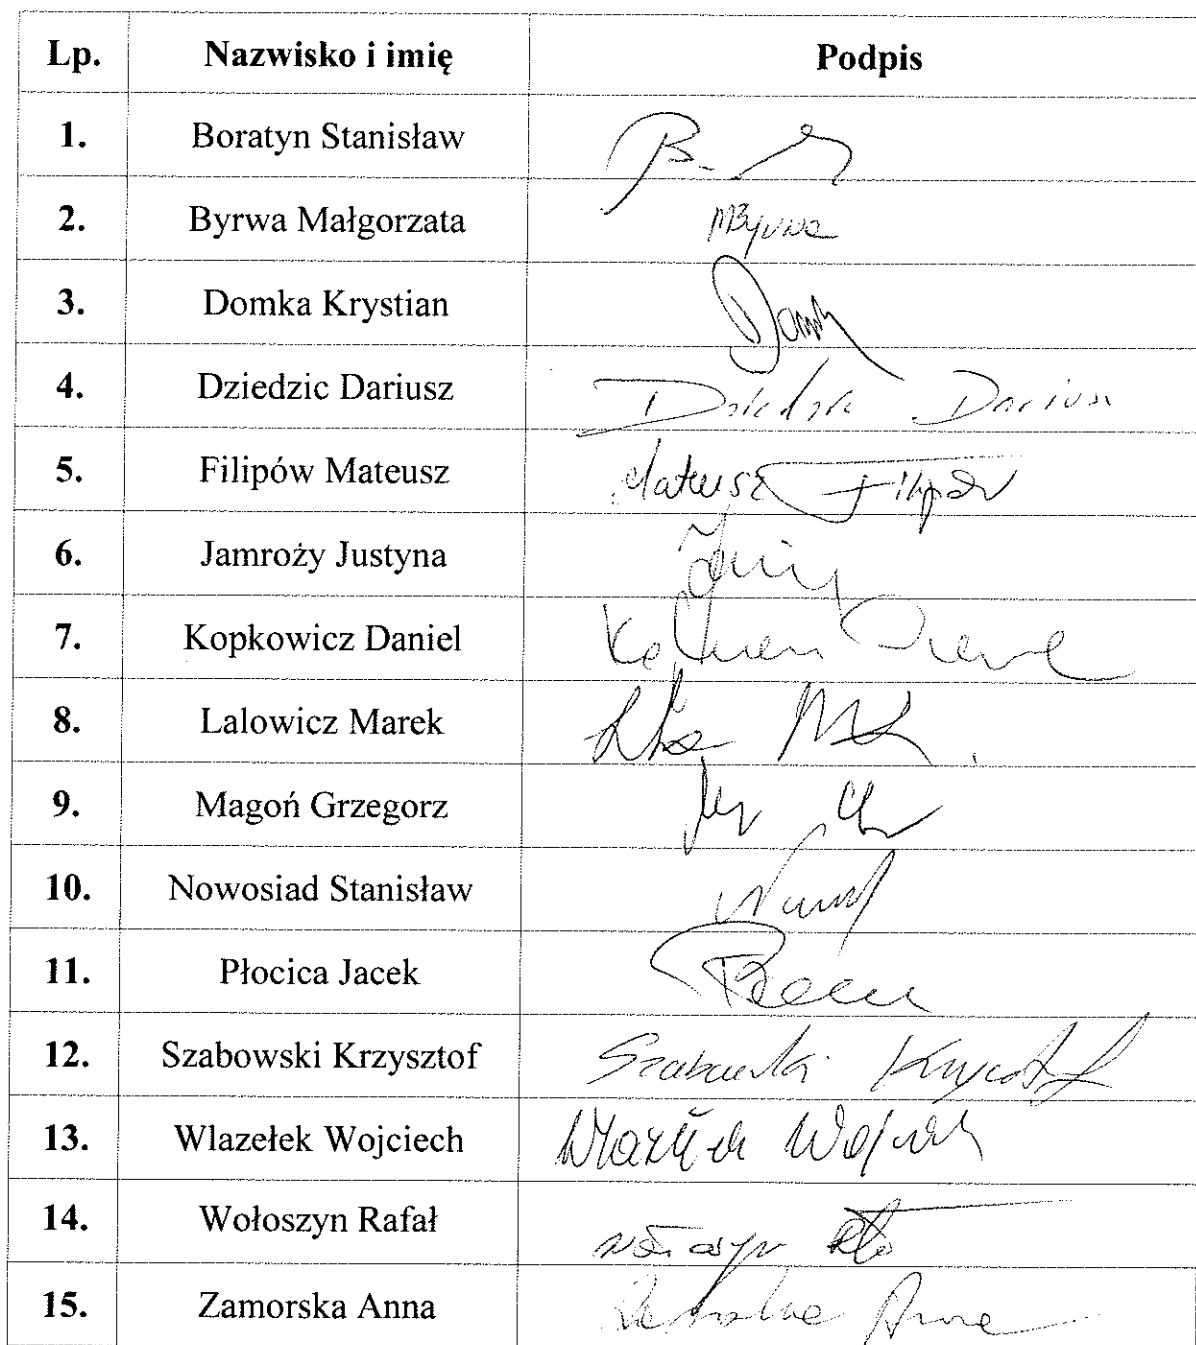 Lp. Nazwisko i imię Podpis
1. Boratyn Stanisław
2. Byrwa Małgorzata MByrwa
3. Domka Krystian
4. Dziedzic Dariusz Dziedzic Dariusz
5. Filipów Mateusz Mateusz Filipów
6. Jamroży Justyna
7. Kopkowicz Daniel
8. Lalowicz Marek
9. Magoń Grzegorz
10. Nowosiad Stanisław
11. Płocica Jacek
12. Szabowski Krzysztof Szabowski Krzysztof
13. Wlazełek Wojciech Wlazełek Wojciech
14. Wołoszyn Rafał
15. Zamorska Anna Anna